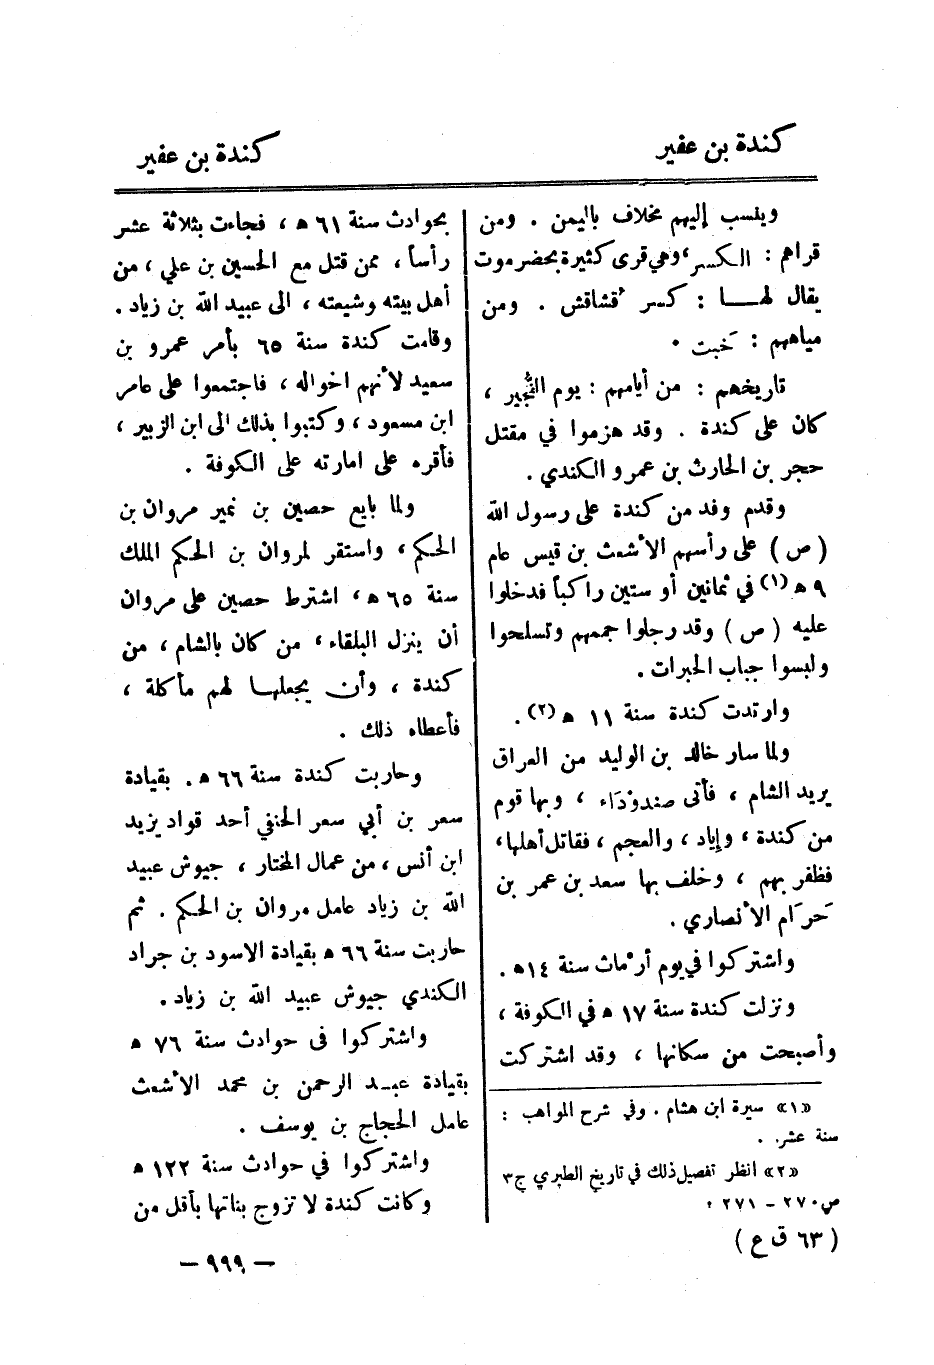 كندة بن عفير
كندة بن عفير
وينسب إليهم مخلاف باليمن . ومن
قراهم : الكسر، وهي قرى كثيرة بحضرموت
يقال لها : كسر قُشاقش . ومن
مياههم : خَبت .
تاريخهم : من أيامهم : يوم النُّجير ،
كان على كندة . وقد هزموا في مقتل
حجر بن الحارث بن عمرو الكندي .
وقدم وفد من كندة على رسول الله
(ص) على رأسهم الأشعث بن قيس عام
٩ هـ (١) في ثمانين أو ستين راكباً فدخلوا
عليه (ص) وقد رجلوا جمعهم وتسلحوا
ولبسوا جباب الحبرات .
وارتدت كندة سنة ١١ هـ (٢) .
ولما سار خالد بن الوليد من العراق
يريد الشام ، فأتى صندوْدَاء ، وبها قوم
من كندة ، وإياد ، والعجم ، فقاتل أهلها ،
فظفر بهم ، وخلف بها سعد بن عمر بن
حَرَام الأنصاري .
واشتركوا في يوم أرْماث سنة ١٤هـ .
ونزلت كندة سنة ١٧ هـ في الكوفة ،
وأصبحت من سكانها ، وقد اشتركت
«١» سيرة ابن هشام . وفي شرح المواهب :
سنة عشر . .
«٢» انظر تفصيل ذلك في تاريخ الطبري ج٣
ص ٢٧٠ - ٢٧١ .
(٦٣ ق ع)
بحوادث سنة ٦١ هـ ، فجاءت بثلاثة عشر
رأساً ، ممن قتل مع الحسين بن علي ، من
أهل بيته وشيعته ، الى عبيد الله بن زياد .
وقامت كندة سنة ٦٥ بأمر عمرو بن
سعيد لأنهم اخواله ، فاجتمعوا على عامر
ابن مسعود ، وكتبوا بذلك الى ابن الزبير ،
فأقره على امارته على الكوفة .
ولما بايع حصين بن نمير مروان بن
الحكم ، واستقر لمروان بن الحكم الملك
سنة ٦٥ هـ ، اشترط حصين على مروان
أن ينزل البلقاء ، من كان بالشام ، من
كندة ، وأن يجعلها لهم مأكلة ،
فأعطاه ذلك .
وحاربت كندة سنة ٦٦ هـ . بقيادة
سعر بن أبي سعر الحنفي أحد قواد يزيد
ابن أنس ، من عمال المختار ، جيوش عبيد
الله بن زياد عامل مروان بن الحكم . ثم
حاربت سنة ٦٦ هـ بقيادة الاسود بن جراد
الكندي جيوش عبيد الله بن زياد .
واشتركوا في حوادث سنة ٧٦ هـ
بقيادة عبد الرحمن بن محمد الأشعث
عامل الحجاج بن يوسف .
واشتركوا في حوادث سنة ١٢٢ هـ
وكانت كندة لا تزوج بناتها بأقل من
— ٩٩٩ —